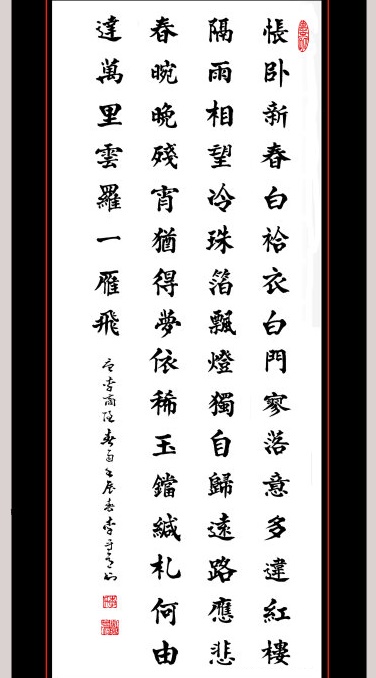 帳卧新春白袷衣白門寥落意多違紅樓
隔雨相望冷珠箔飄燈獨自歸遠路應悲
春晼晚殘宵猶得夢依稀玉鐺緘札何由
達萬里雲羅一雁飛
李商隱春雨壬辰春李